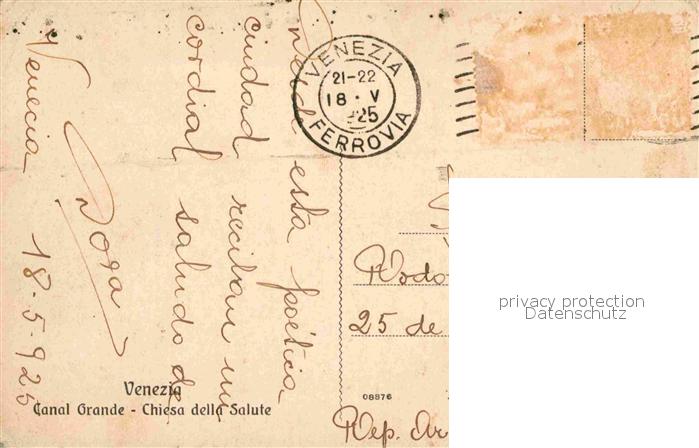 Desde esta poética
ciudad reciban un
cordial saludo de
Doga
Venecia 18-5-925
VENEZIA
21-22
18 · V
925
FERROVIA
Rodo
25 de
Rep. Ar
privacy protection
Datenschutz
08876
Venezia
Canal Grande - Chiesa della Salute